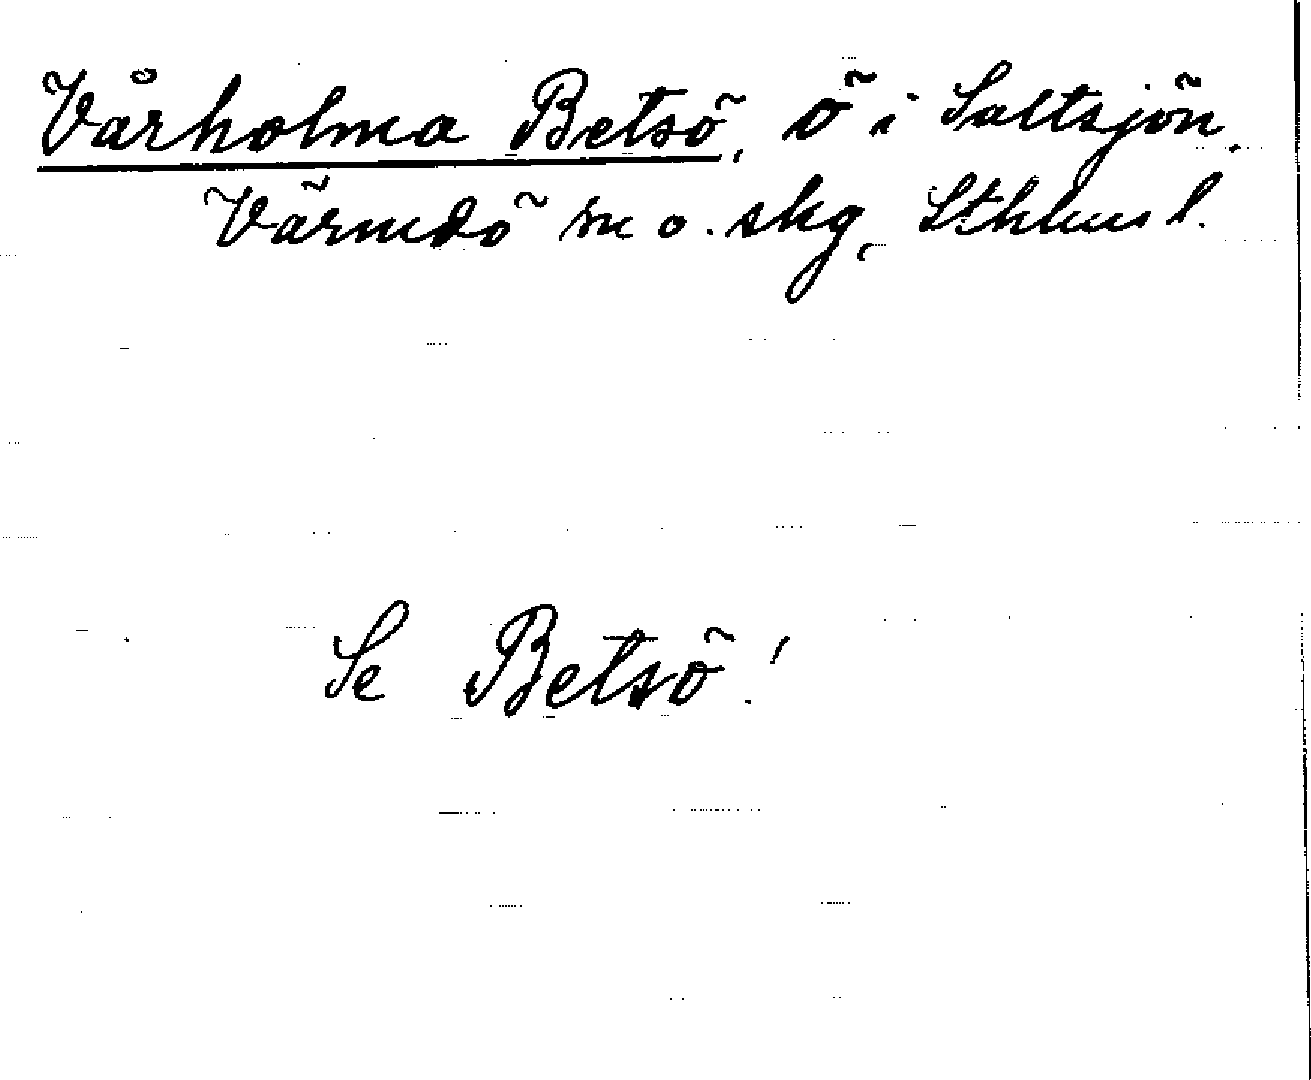 Vårholma Betsö, ö i Saltsjön.
Värmdö sn o. skg, Sthlms l.
Se Betsö!